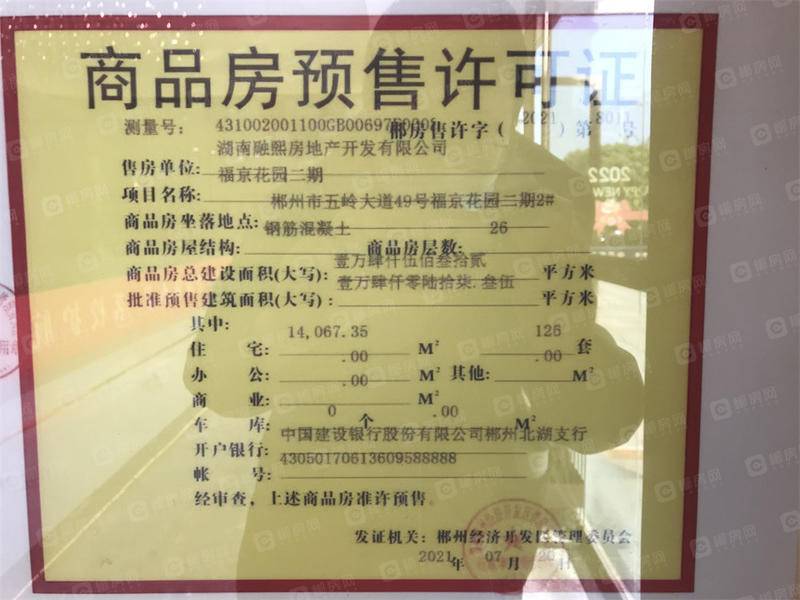 商品房预售许可证
测量号: 431002001100GB00697
郴房售许字(2021)第8011号
湖南融熙房地产开发有限公司
售房单位:
福京花园二期
项目名称:
郴州市五岭大道49号福京花园二期2#
商品房坐落地点:
钢筋混凝土 26
商品房屋结构: 商品房层数:
壹万肆仟伍佰叁拾贰
商品房总建设面积(大写): 平方米
壹万肆仟零陆拾柒.叁伍
批准预售建筑面积(大写): 平方米
其中:
14,067.35 126
住 宅: M² 套
.00 .00
办 公: M² 其他: M²
.00
商 业: M²
0 .00
车 库: 个 M²
中国建设银行股份有限公司郴州北湖支行
开户银行:
43050170613609588888
帐 号:
经审查,上述商品房准许预售。
发证机关: 郴州经济开发区管理委员会
2021年07月20日
2022
PPY NEW
郴房网